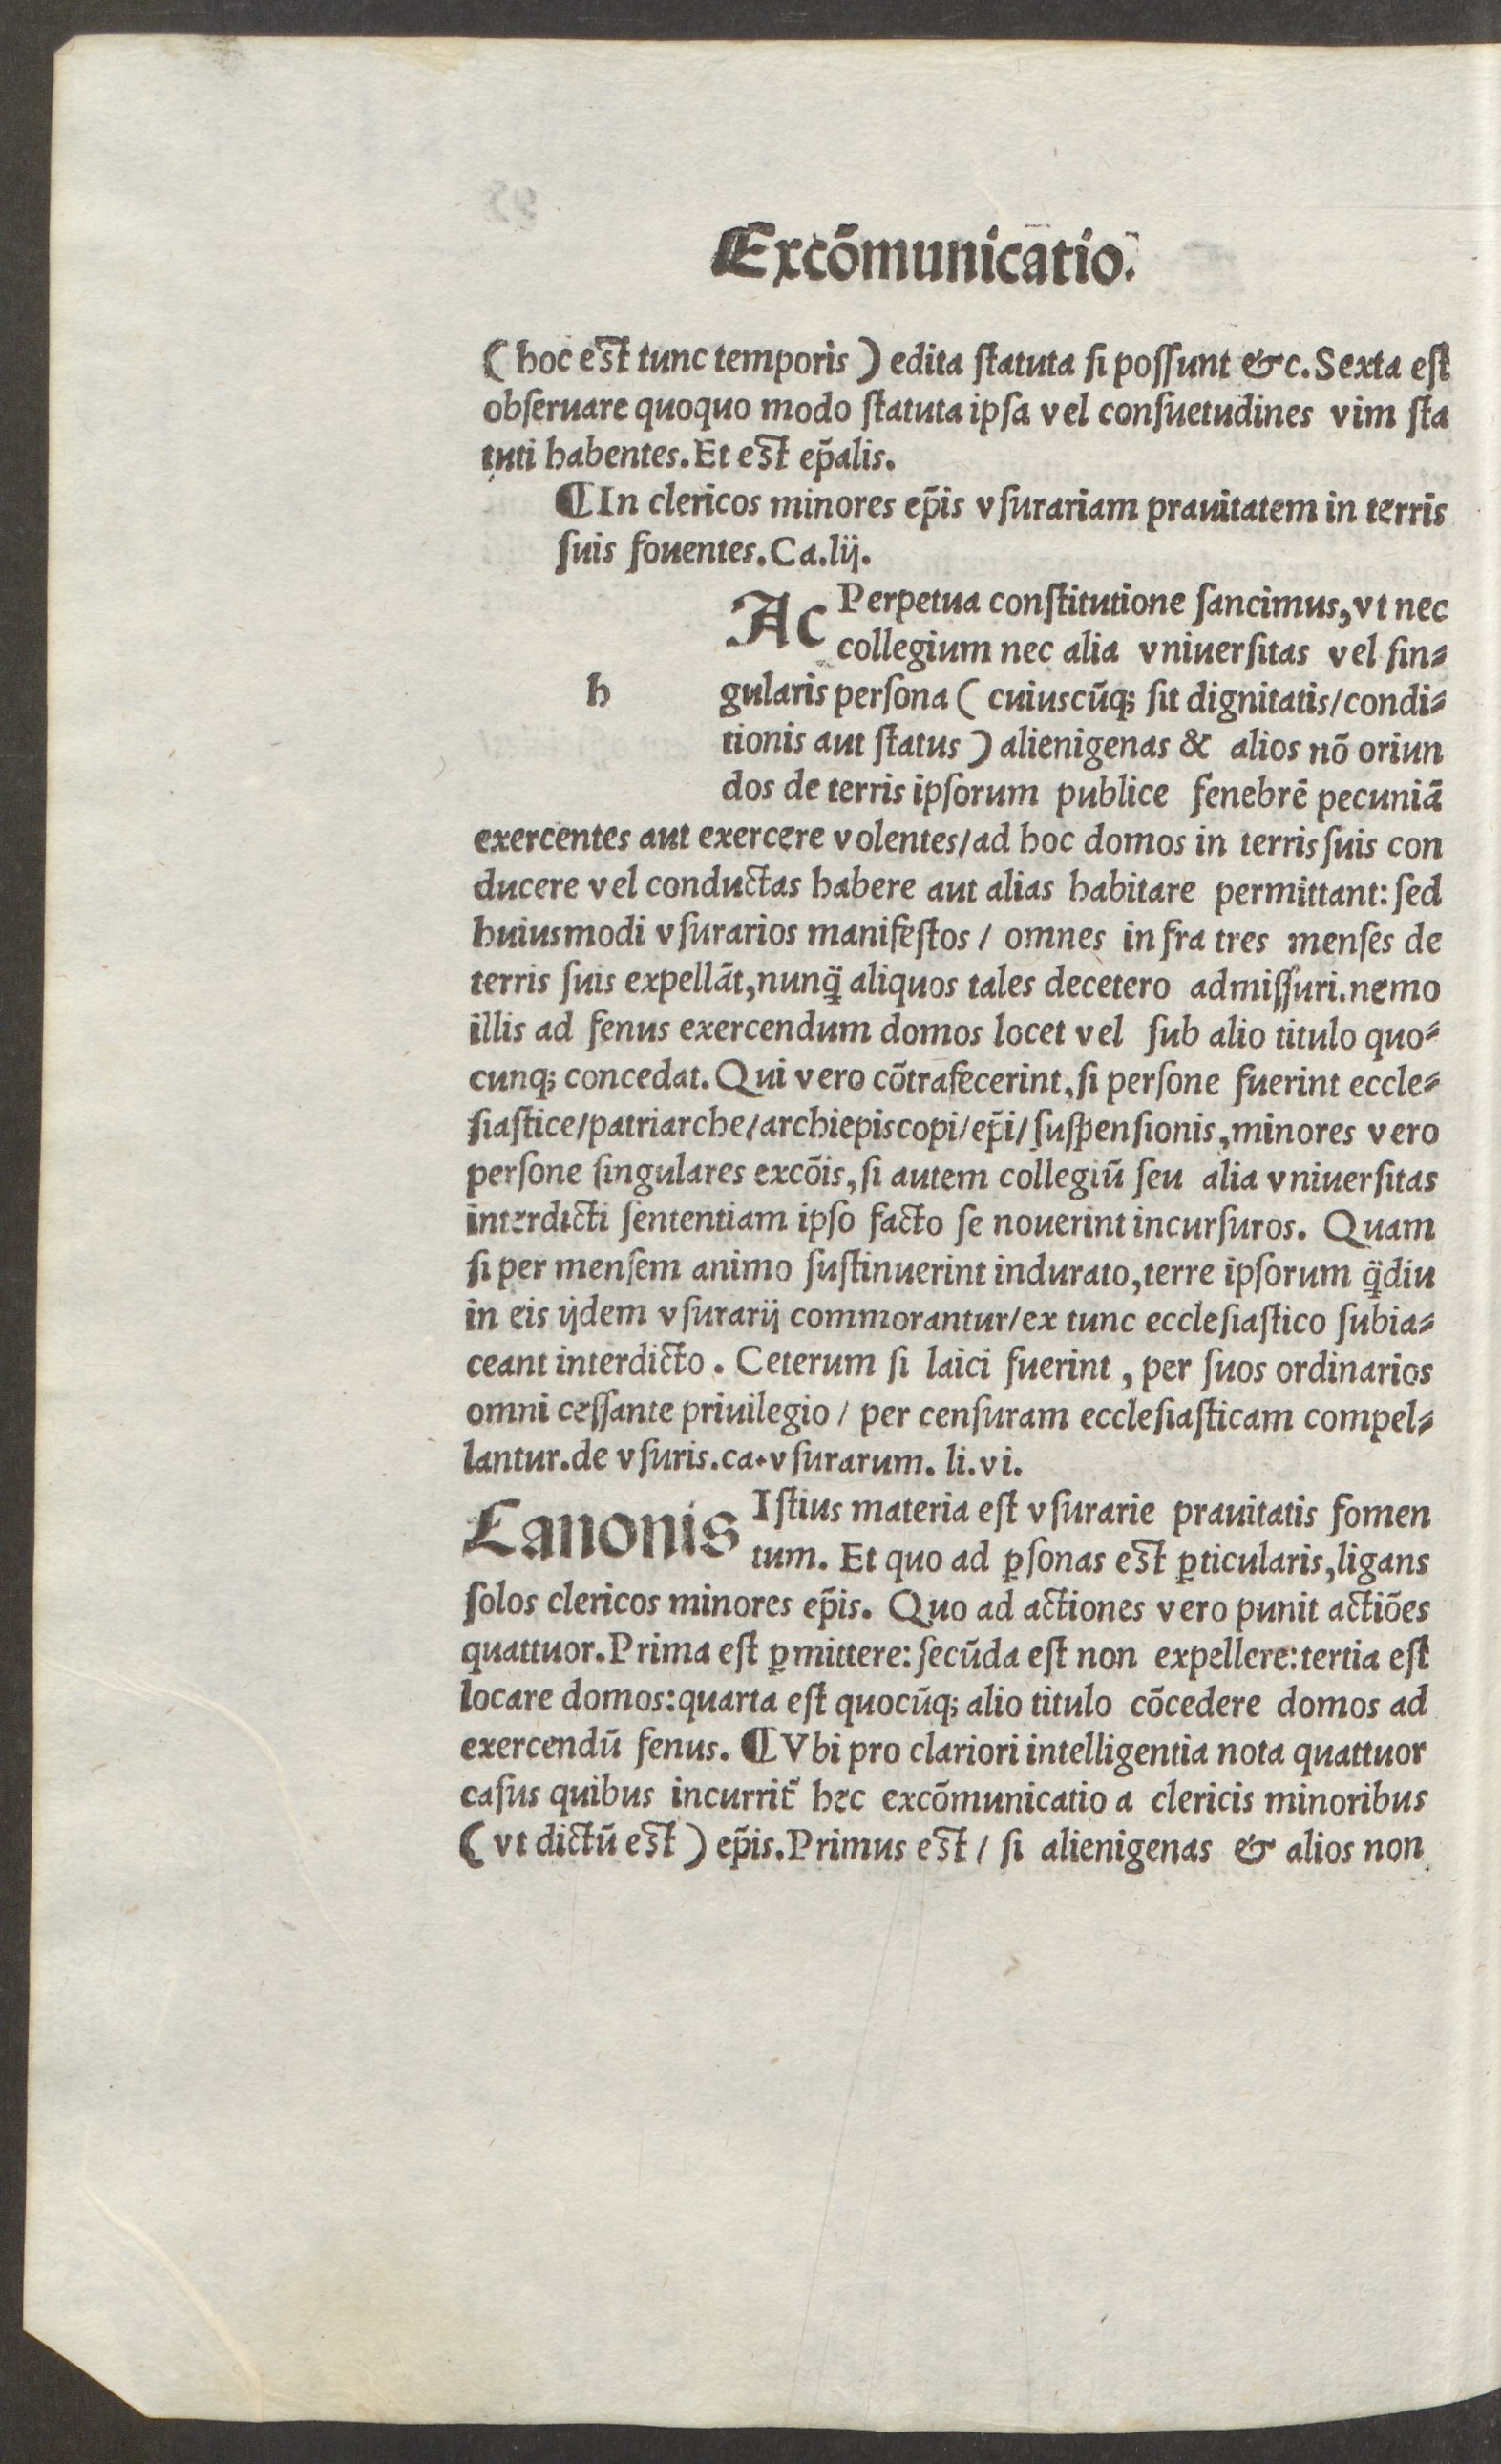 Excōmunicatio.
(hoc es̄t tunc temporis) edita ſtatuta ſi poſſunt &c. Sexta eſt
obſeruare quoquo modo ſtatuta ipſa vel conſuetudines vim ſta
tuti habentes. Et es̄t ep̄alis.
¶ In clericos minores ep̄is vſurariam prauitatem in terris
ſuis fouentes. Ca. lij.
h AC Perpetua conſtitutione ſancimus, vt nec
collegium nec alia vniuerſitas vel ſin⸗
gularis perſona (cuiuscūq; ſit dignitatis/condi⸗
tionis aut ſtatus) alienigenas & alios nō oriun
dos de terris ipſorum publice fenebrē pecuniā
exercentes aut exercere volentes/ad hoc domos in terris ſuis con
ducere vel conductas habere aut alias habitare permittant: ſed
huiusmodi vſurarios manifeſtos / omnes infra tres menſes de
terris ſuis expellāt, nunq̄ aliquos tales decetero admiſſuri. nemo
illis ad fenus exercendum domos locet vel ſub alio titulo quo⸗
cunq; concedat. Qui vero cōtrafecerint, ſi perſone fuerint eccle⸗
ſiaſtice/patriarche/archiepiscopi/ep̄i/ſuſpenſionis, minores vero
perſone ſingulares excōis, ſi autem collegiū ſeu alia vniuerſitas
interdicti ſententiam ipſo facto ſe nouerint incurſuros. Quam
ſi per menſem animo ſuſtinuerint indurato, terre ipſorum q̄diu
in eis ijdem vſurarij commorantur/ex tunc eccleſiaſtico ſubia⸗
ceant interdicto. Ceterum ſi laici fuerint, per ſuos ordinarios
omni ceſſante priuilegio / per cenſuram eccleſiaſticam compel⸗
lantur. de vſuris. ca. vſurarum. li. vi.
Canonis Iſtius materia eſt vſurarie prauitatis fomen
tum. Et quo ad ꝑſonas es̄t ꝑticularis, ligans
ſolos clericos minores ep̄is. Quo ad actiones vero punit actiōes
quattuor. Prima eſt ꝑmittere: ſecūda eſt non expellere: tertia eſt
locare domos: quarta eſt quocūq; alio titulo cōcedere domos ad
exercendū fenus. ¶ Vbi pro clariori intelligentia nota quattuor
caſus quibus incurrit᷑ hec excōmunicatio a clericis minoribus
(vt dictū es̄t) ep̄is. Primus es̄t / ſi alienigenas & alios non